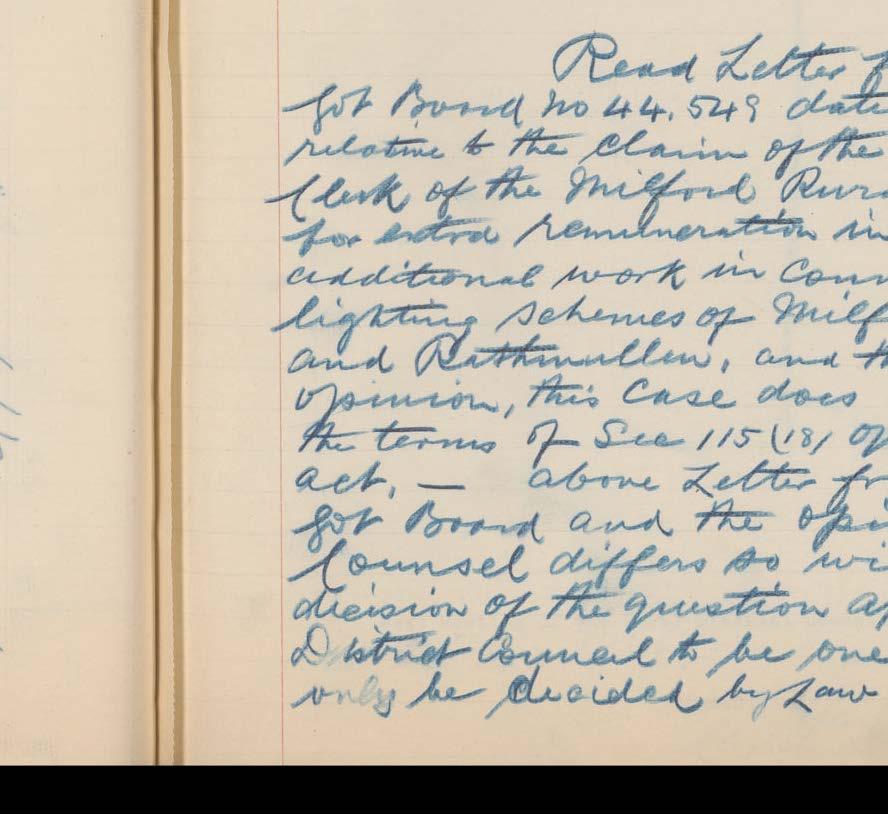 Read Letter f
Govt Board No 44.549 date
relative to the claim of the
Clerk of the Milford Rura
for extra remuneration in
additional work in Conn
lighting schemes of Milf
and Rathmullen, and th
opinion, this Case does
the terms of Sec 115(18) of
act, — above Letter fr
Govt Board and the opi
Counsel differs so wi
decision of the question ap
District Council to be one
only be decided by Law